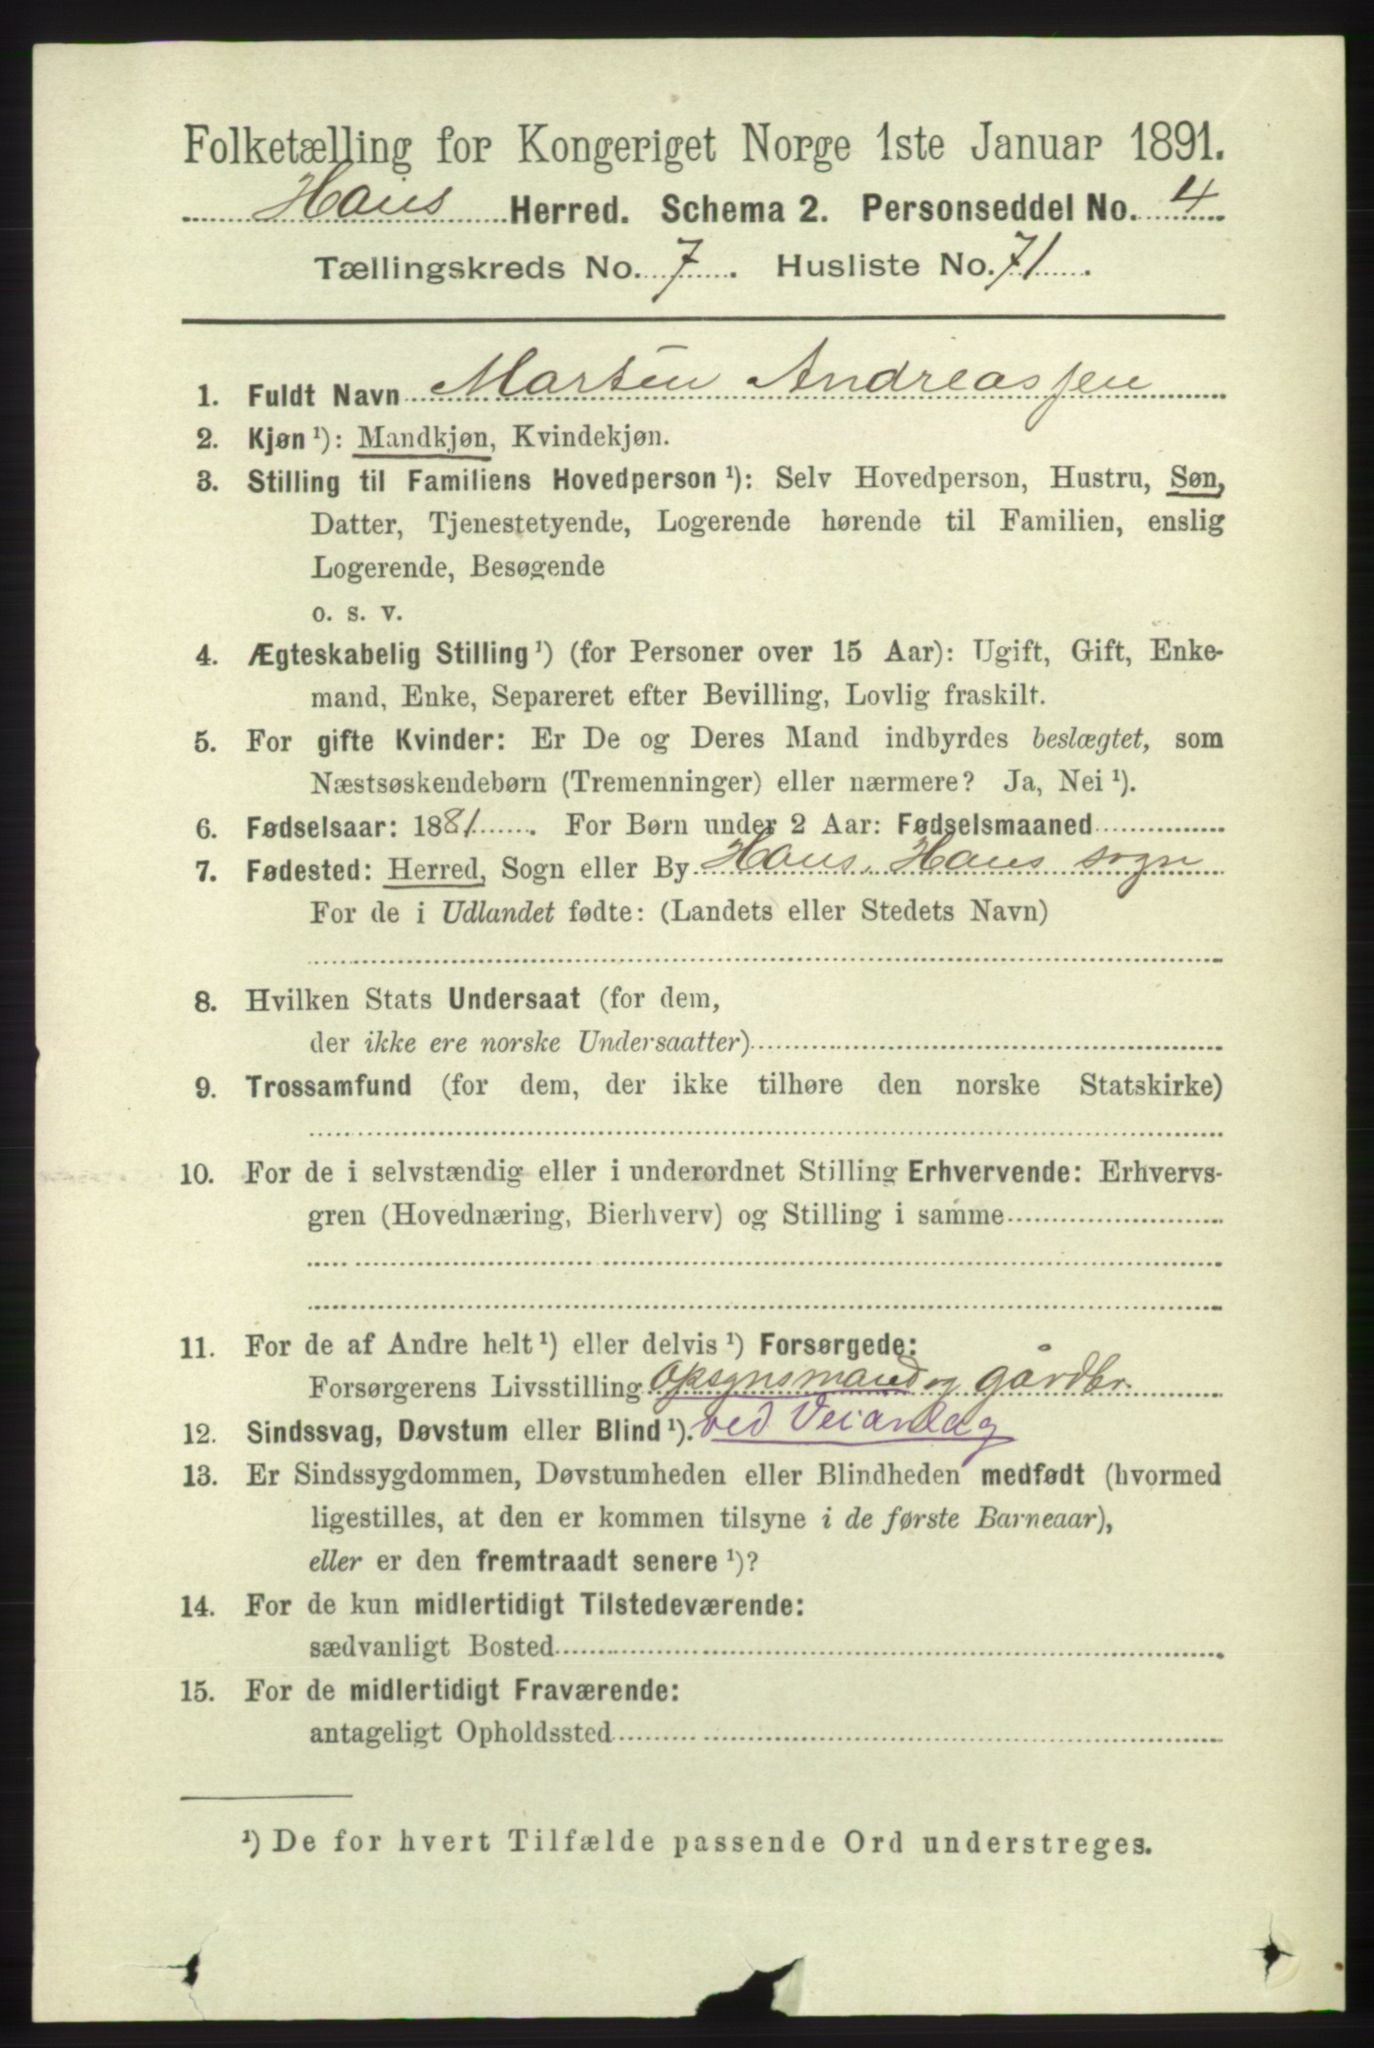 Folketælling for Kongeriget Norge 1ste Januar 1891.
Haus Herred. Schema 2. Personseddel No. 4
Tællingskreds No. 7. Husliste No. 71.
1. Fuldt Navn Martin Andreassen
2. Kjøn ¹): Mandkjøn, Kvindekjøn.
3. Stilling til Familiens Hovedperson ¹): Selv Hovedperson, Hustru, Søn,
Datter, Tjenestetyende, Logerende hørende til Familien, enslig
Logerende, Besøgende
o. s. v.
4. Ægteskabelig Stilling ¹) (for Personer over 15 Aar): Ugift, Gift, Enke-
mand, Enke, Separeret efter Bevilling, Lovlig fraskilt.
5. For gifte Kvinder: Er De og Deres Mand indbyrdes beslægtet, som
Næstsøskendebørn (Tremenninger) eller nærmere? Ja, Nei ¹).
6. Fødselsaar: 1881. For Børn under 2 Aar: Fødselsmaaned
7. Fødested: Herred, Sogn eller By Haus, Haus sogn
For de i Udlandet fødte: (Landets eller Stedets Navn)
8. Hvilken Stats Undersaat (for dem,
der ikke ere norske Undersaatter)
9. Trossamfund (for dem, der ikke tilhøre den norske Statskirke)
10. For de i selvstændig eller i underordnet Stilling Erhvervende: Erhvervs-
gren (Hovednæring, Bierhverv) og Stilling i samme
11. For de af Andre helt ¹) eller delvis ¹) Forsørgede:
Forsørgerens Livsstilling Opsynsmand og gårdbr.
12. Sindssvag, Døvstum eller Blind ¹). ved Veianlæg
13. Er Sindssygdommen, Døvstumheden eller Blindheden medfødt (hvormed
ligestilles, at den er kommen tilsyne i de første Barneaar),
eller er den fremtraadt senere ¹)?
14. For de kun midlertidigt Tilstedeværende:
sædvanligt Bosted
15. For de midlertidigt Fraværende:
antageligt Opholdssted
¹) De for hvert Tilfælde passende Ord understreges.